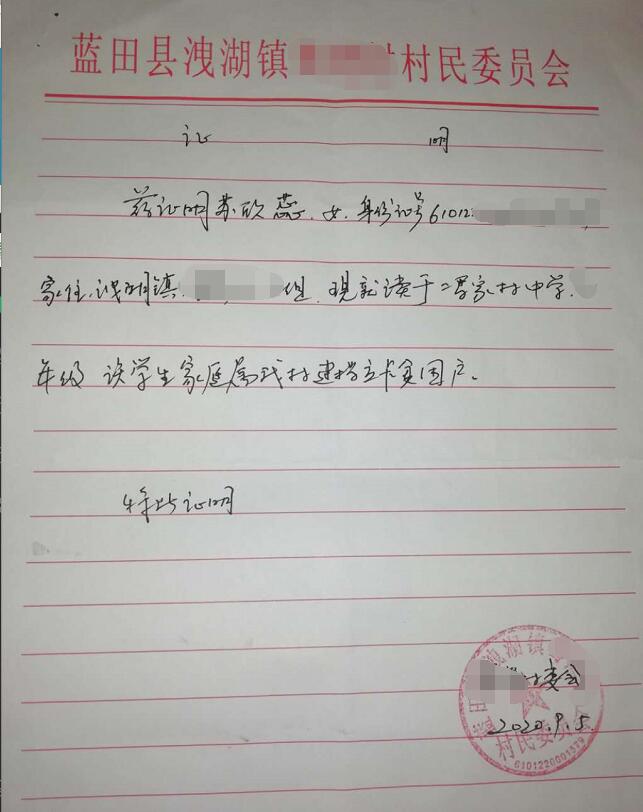 蓝田县洩湖镇 村民委员会
证 明
兹证明苏欣蕊，女，身份证号61012
家住洩湖镇 组，现就读于冯家村中学
年级 该学生家庭属我村建档立卡贫困户。
特此证明
洩湖镇
村委会
2020.9.5
村民委员会
6101220001379